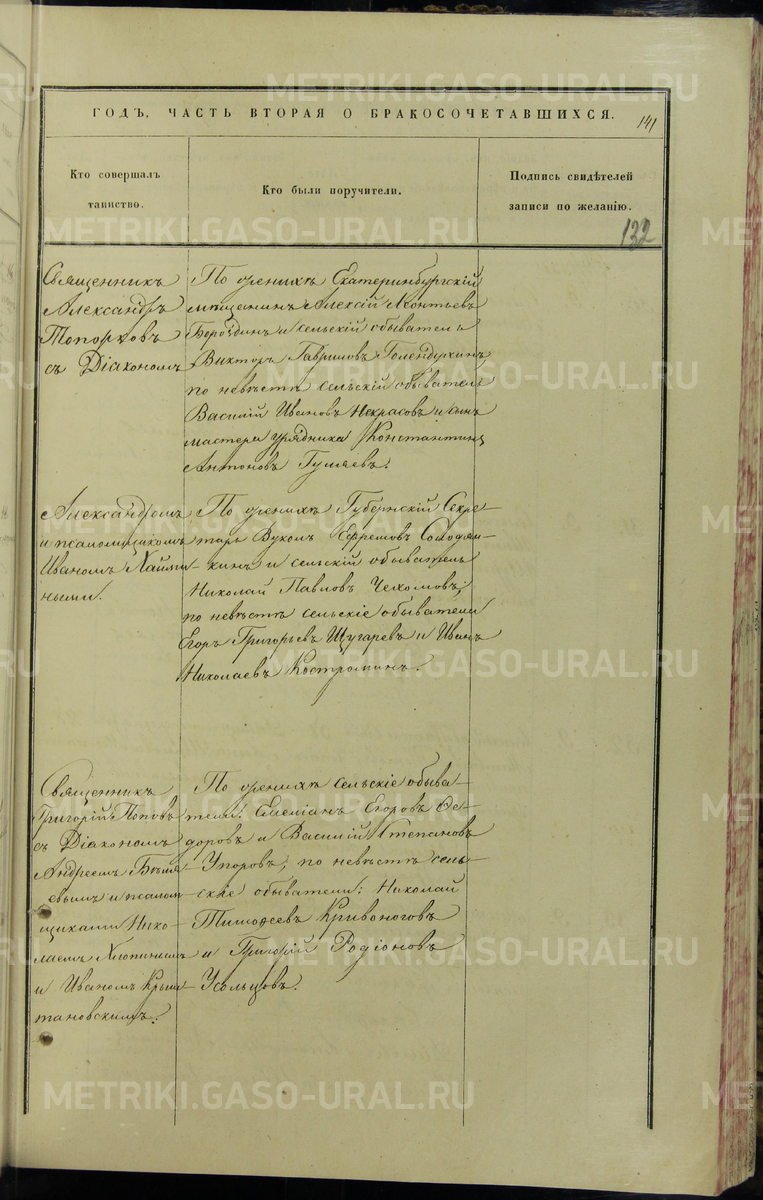 METRIKI.GASO-URAL.RU
ГОДЪ, ЧАСТЬ ВТОРАЯ О БРАКОСОЧЕТАВШИХСЯ.
141
Кто совершалъ
таинство.
Кто были поручители.
Подпись свидѣтелей
записи по желанію.
132
Священникъ
Александръ
Топорковъ
съ Діакономъ
По женихѣ Екатеринбургскій
мѣщанинъ Алексій Леонтьевъ
Бородинъ и сельскій обыватель
Викторъ Гавриловъ Голендухинъ
по невѣстѣ сельскій обыватель
Василій Ивановъ Некрасовъ и сынъ
мастера урядника Константинъ
Антоновъ Гуляевъ.
Александромъ
и псаломщикомъ
Иваномъ
ными.
По женихѣ Губернскій Секре-
тарь Вуколъ Ефремовъ Солодян-
кинъ и сельскій обыватель
Николай Павловъ Чехомовъ;
по невѣстѣ сельскіе обыватели
Егоръ Григорьевъ Щугаревъ и Иванъ
Николаевъ Костроминъ.
Священникъ
Григорій Поповъ
съ Діакономъ
Андреемъ Бѣля-
евымъ и псалом-
щиками Нико-
лаемъ Хлопинымъ
и Иваномъ Крыш-
тановскимъ.
По женихѣ сельскіе обыва-
тели: Емеліанъ Егоровъ Ѳе-
доровъ и Василій Степановъ
Упоровъ; по невѣстѣ сель-
скіе обыватели: Николай
Тимоѳеевъ Кривоноговъ
и Григорій Родіоновъ
Усольцовъ.